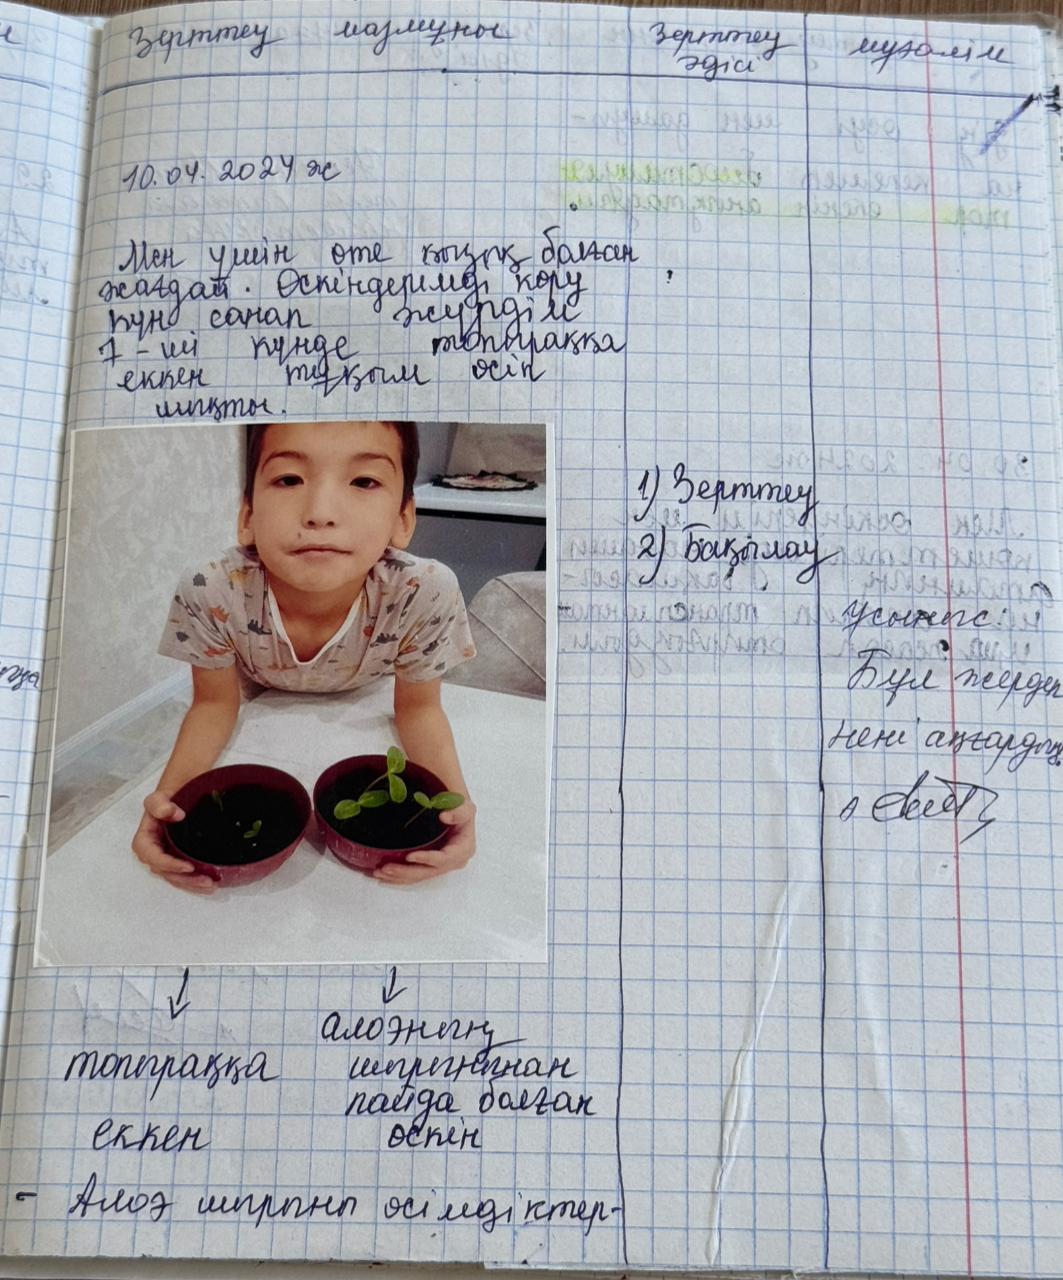 Зерттеу мазмұны
Зерттеу
әдісі
мұғалім
10.04.2024 ж
Мен үшін өте қызық болған
жағдай. Өскіндерімді көру
күн санап жүрдім
7-ші күнде топыраққа
еккен тұқым өсіп
шықты.
1) Зерттеу
2) Бақылау
Ұсыныс:
Бұл жерден
нені аңғардың
топыраққа
еккен
алоэның
шырынынан
пайда болған
өскін
- Алоэ шырыны өсімдіктер-